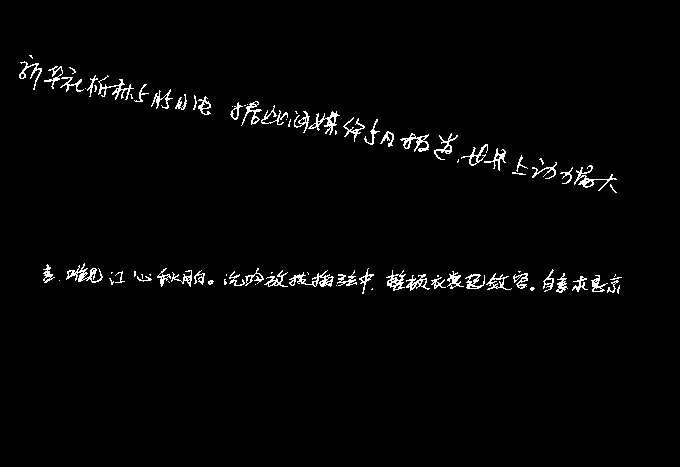 新华社柏林5月5日电 据此间媒体5日报道,世界上动力最大
言,唯见江心秋月白。沉吟放拨插弦中,整顿衣裳起敛容。自言本是京